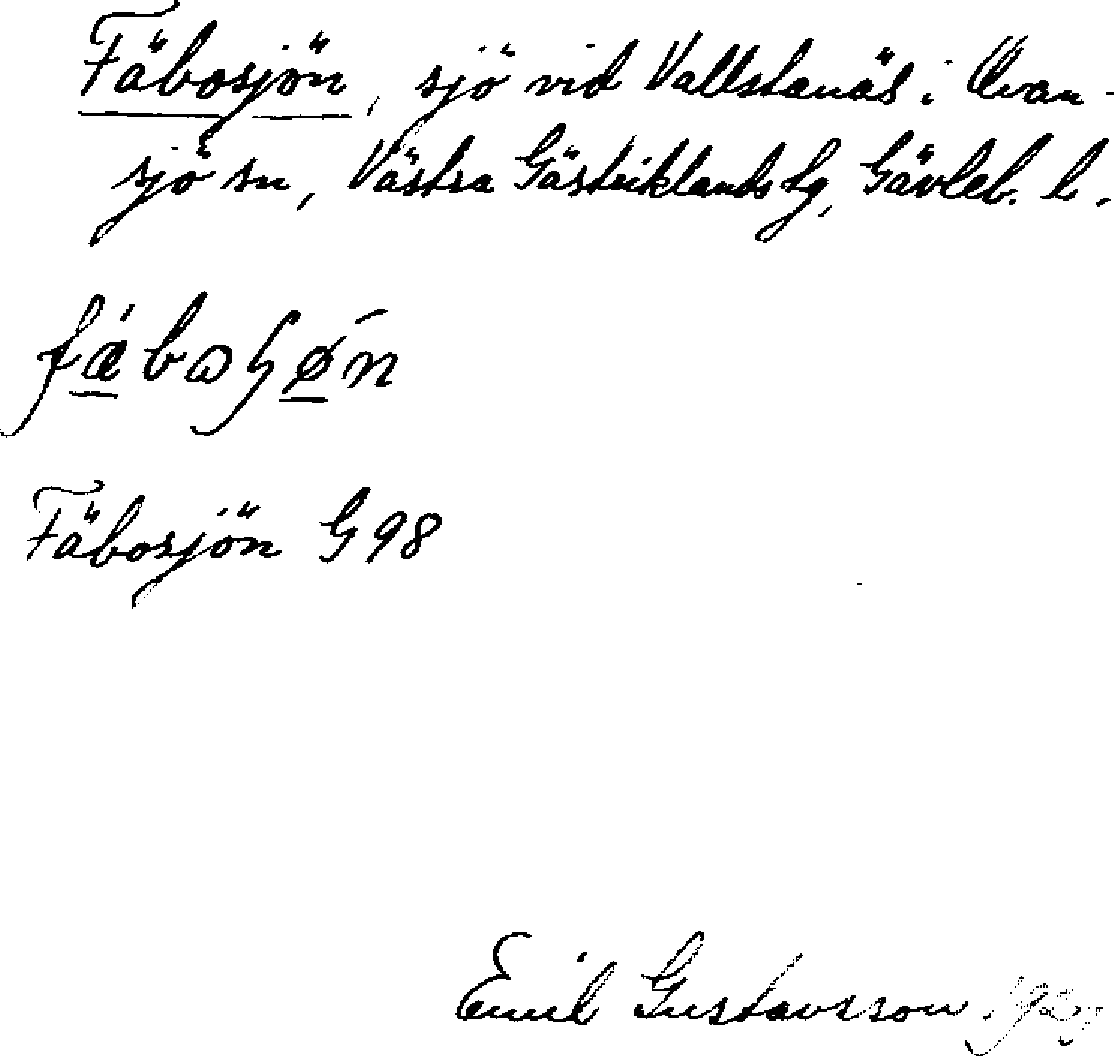 Fäbosjön, sjö vid Vallstanäs i Ovan-
sjö sn, Västra Gästriklands tg, Gävleb. l.
fǽbɷʃǿn
Fäbosjön G 98
Emil Gustavsson.